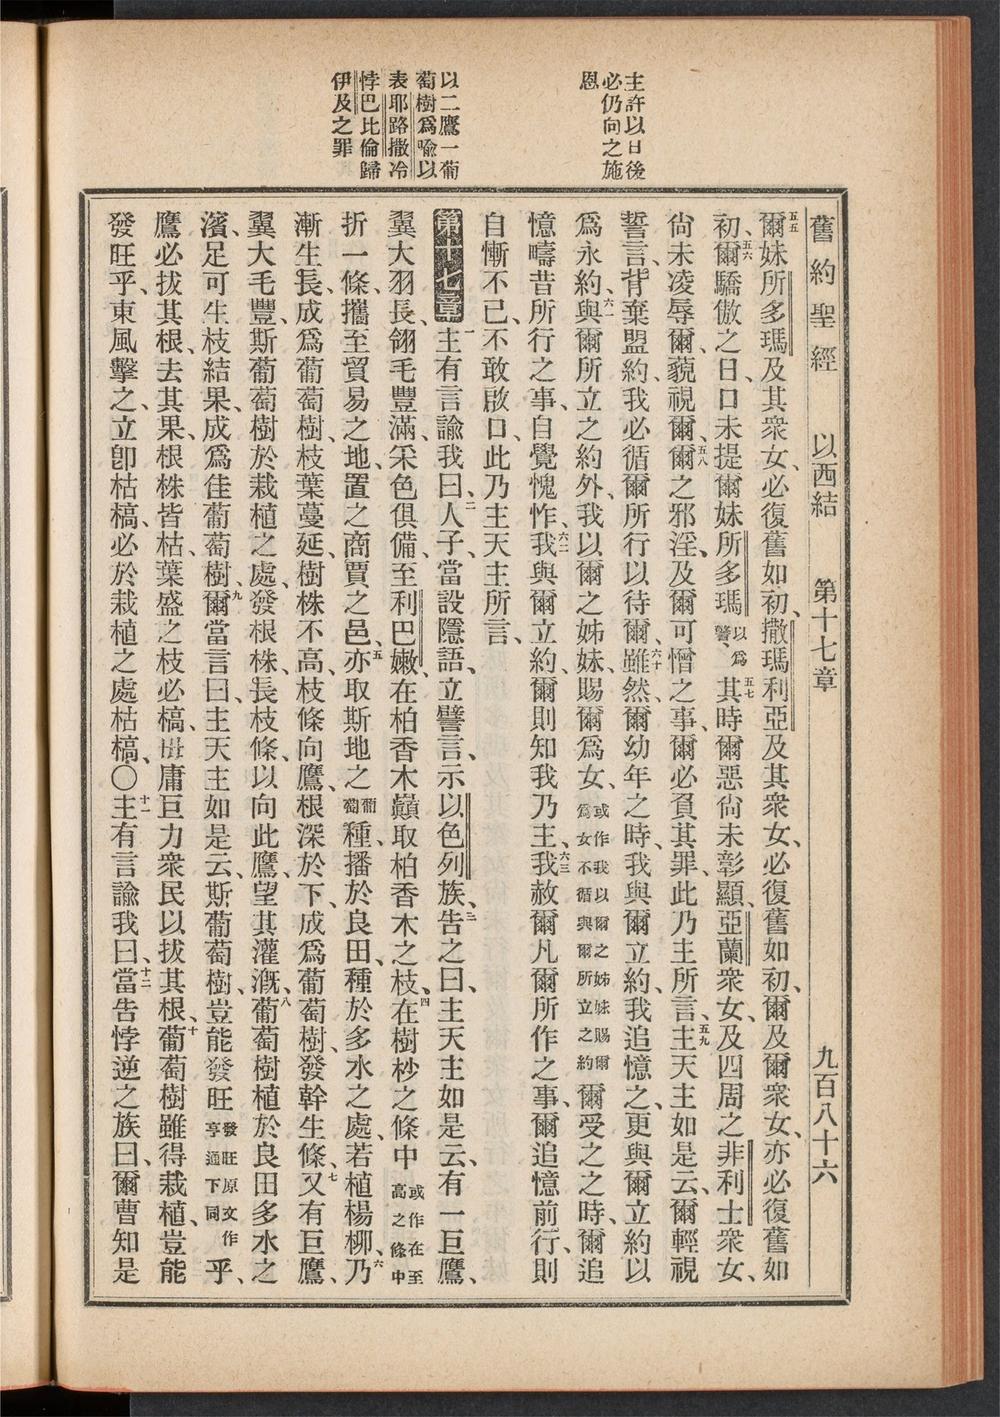 主許以日後
必仍向之施
恩
以二鷹一葡
萄樹爲喩以
表耶路撒冷
悖巴比倫歸
伊及之罪
舊約聖經 以西結 第十七章 九百八十六
五五爾妹所多瑪及其衆女、必復舊如初、撒瑪利亞及其衆女、必復舊如初、爾及爾衆女、亦必復舊如
初、五六爾驕傲之日、口未提爾妹所多瑪以爲警、五七其時爾惡尙未彰顯、亞蘭衆女、及四周之非利士衆女、
尙未凌辱爾、藐視爾、五八爾之邪淫、及爾可憎之事、爾必負其罪、此乃主所言、五九主天主如是云、爾輕視
誓言、背棄盟約、我必循爾所行以待爾、六十雖然、爾幼年之時、我與爾立約、我追憶之、更與爾立約以
爲永約、六一與爾所立之約外、我以爾之姊妹、賜爾爲女、或作我以爾之姊妹賜爾爲女不循與爾所立之約爾受之之時、爾追
憶疇昔所行之事、自覺愧怍、六二我與爾立約、爾則知我乃主、六三我赦爾凡爾所作之事、爾追憶前行、則
自慚不已、不敢啟口、此乃主天主所言、
第十七章 一主有言諭我曰、二人子、當設隱語、立譬言、示以色列族、三告之曰、主天主如是云、有一巨鷹、
翼大羽長、翎毛豐滿、采色俱備、至利巴嫩、在柏香木巓、取柏香木之枝、四在樹杪之條中或作在至高之條中
折一條、攜至貿易之地、置之商賈之邑、五亦取斯地之葡萄種、播於良田、種於多水之處、若植楊柳、六乃
漸生長、成爲葡萄樹、枝葉蔓延、樹株不高、枝條向鷹、根深於下、成爲葡萄樹、發幹生條、七又有巨鷹、
翼大毛豐、斯葡萄樹於栽植之處、發根株、長枝條、以向此鷹、望其灌漑、八葡萄樹植於良田多水之
濱、足可生枝結果、成爲佳葡萄樹、九爾當言曰、主天主如是云、斯葡萄樹、豈能發旺發旺原文作亨通下同乎、
鷹必拔其根、去其果、根株皆枯、葉盛之枝必槁、毋庸巨力衆民以拔其根、十葡萄樹雖得栽植、豈能
發旺乎、東風擊之、立卽枯槁、必於栽植之處枯槁、〇十一主有言諭我曰、十二當告悖逆之族曰、爾曹知是